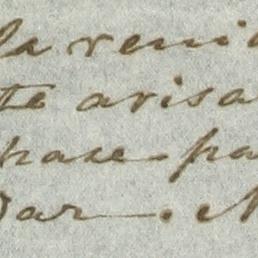 la veni
te avisa
hase pa
dar.